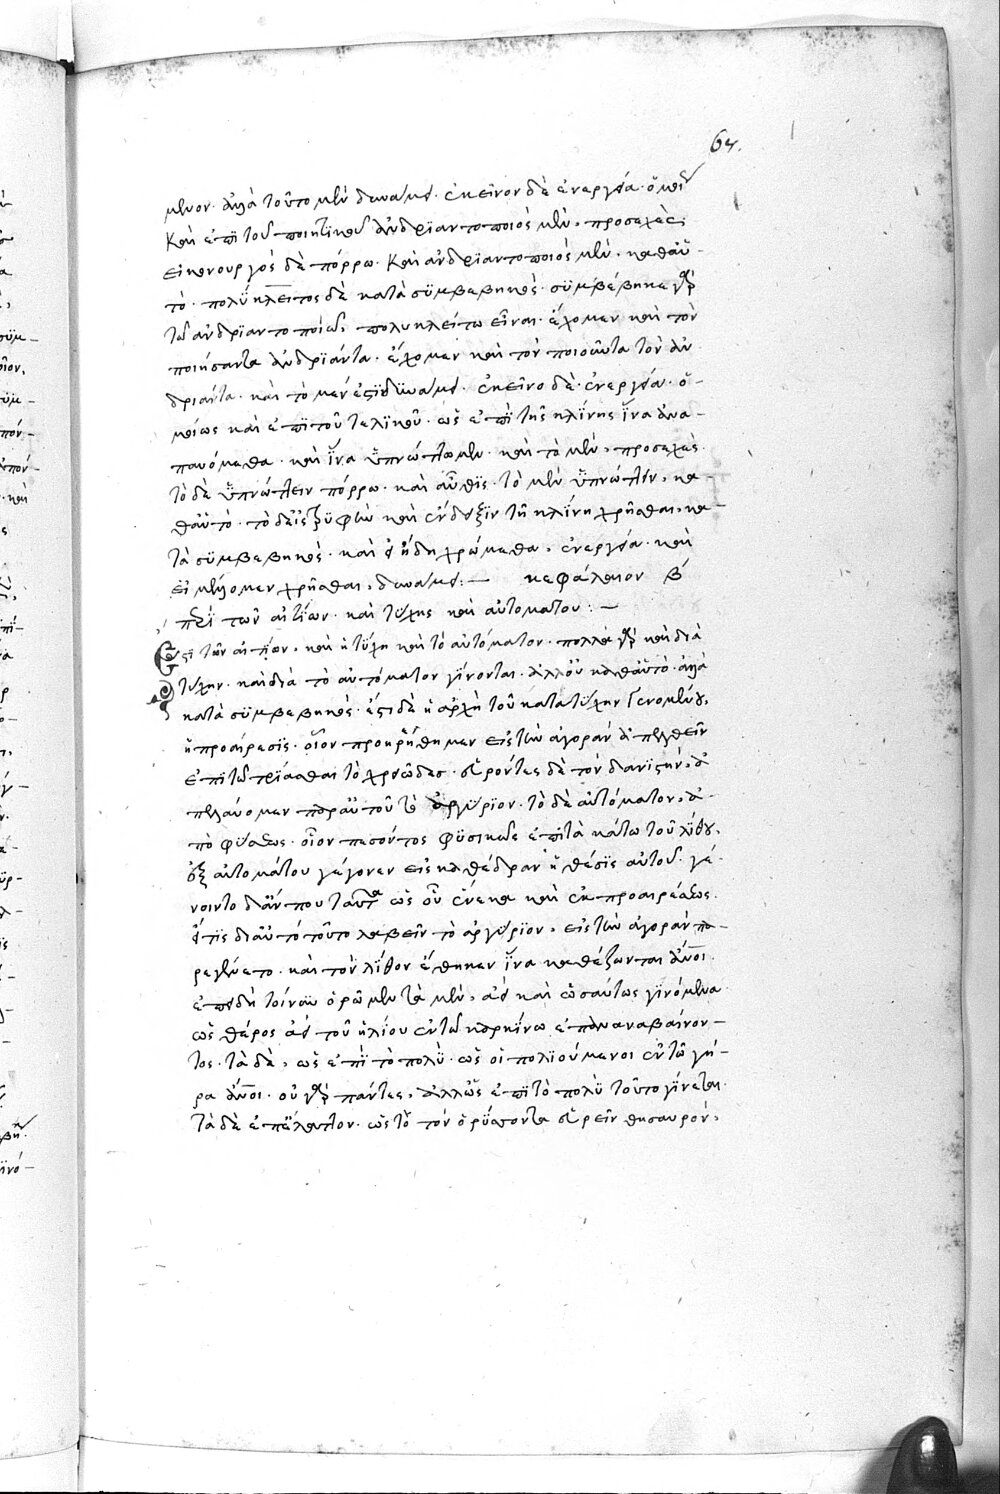 64.
μενον· ἀλλὰ τοῦτο μὲν δυνάμει· ἐκεῖνον δὲ ἐνεργεία· ὁμοί
καὶ ἐπὶ τοῦ ποιητικοῦ ἀνδριαντοποιὸς μὲν, προσεχὲς·
εἰκονουργὸς δὲ πόρρω· καὶ ἀνδριαντοποιὸς μὲν, καθαὑ-
τὸ· πολύκλειτος δὲ κατὰ συμβεβηκὸς· συμβέβηκε γὰρ
τῶ ἀνδριαντοποιῶ, πολυκλείτω εἶναι· ἔχομεν καὶ τὸν
ποιήσαντα ἀνδριάντα· ἔχομεν καὶ τὸν ποιοῦντα τὸν ἀν
δριάντα· καὶ τὸ μὲν ἐστὶ δυνάμει· ἐκεῖνο δὲ ἐνεργεία· ὁ-
μοίως καὶ ἐπὶ τοῦ τελικοῦ· ὡς ἐπὶ τῆς κλίνης ἵνα ἀνα-
παυόμεθα· καὶ ἵνα ὑπνώττωμεν· καὶ τὸ μὲν, προσεχὲς
τὸ δὲ ὑπνώττειν πόρρω· καὶ αὖθις· τὸ μὲν ὑπνώττειν, κα
θαὑτὸ· τὸ δὲ εἰς τρυφὴν καὶ ἔνδειξιν τῆ κλίνη χρῆσθαι, κα
τὰ συμβεβηκὸς· καὶ εἰ ἤδη χρώμεθα, ἐνεργεία· καὶ
εἰ μέλλομεν χρῆσθαι, δυνάμει:— κεφάλαιον β
περὶ τῶν αἰτίων· καὶ τύχης καὶ αὐτομάτου:—
Ἔστι τῶν αἰτίων, καὶ ἡ τύχη καὶ τὸ αὐτόματον· πολλὰ γὰρ καὶ διὰ
τύχην· καὶ διὰ τὸ αὐτόματον γίνονται· ἀλλ' οὐ καθαὑτὸ· ἀλλὰ
κατὰ συμβεβηκὸς· ἔστι δὲ ἡ ἀρχὴ τοῦ κατὰ τύχην γενομένου,
ἡ προαίρεσις· οἷον προηρήθημεν εἰς τὴν ἀγορὰν ἀπελθεῖν
ἐπὶ τῶ πρίασθαι τὸ χρεῶδες· εὑρόντες δὲ τὸν δανειστὴν, ἀ
πελαύομεν παρ' αὐτοῦ τὸ ἀργύριον· τὸ δὲ αὐτόματον, ἀ-
πὸ φύσεως· οἷον πεσόντος φυσικῶς ἐπὶ τὰ κάτω τοῦ λίθου,
ἐξ αὐτομάτου γέγονεν εἰς καθέδραν ἡ θέσις αὐτοῦ· γέ-
νοιντο δ' ἄν που ταῦτα ὡς οὗ ἕνεκα καὶ ἐκ προαιρέσεως·
εἴ τις δι' αὐτὸ τοῦτο λαβεῖν τὸ ἀργύριον, εἰς τὴν ἀγορὰν πα-
ρεγένετο· καὶ τὸν λίθον ἔθηκεν ἵνα καθέζωνται ἄνοι·
ἐπειδὴ τοίνυν ὁρῶμεν τὰ μὲν, ἀεὶ καὶ ὡσαύτως γινόμενα
ὡς θέρος ἀεὶ τοῦ ἡλίου ἐν τῶ καρκίνω ἐπαναβαίνον-
τος· τὰ δὲ, ὡς ἐπὶ τὸ πολὺ· ὡς οἱ πολιούμενοι ἐν τῶ γή-
ρα ἄνοι· οὐ γὰρ πάντες, ἀλλ' ὡς ἐπὶ τὸ πολὺ τοῦτο γίνεται·
τὰ δὲ ἐπ' ἔλαττον· ὡς τὸ τὸν ὀρύσσοντα εὑρεῖν θησαυρόν,